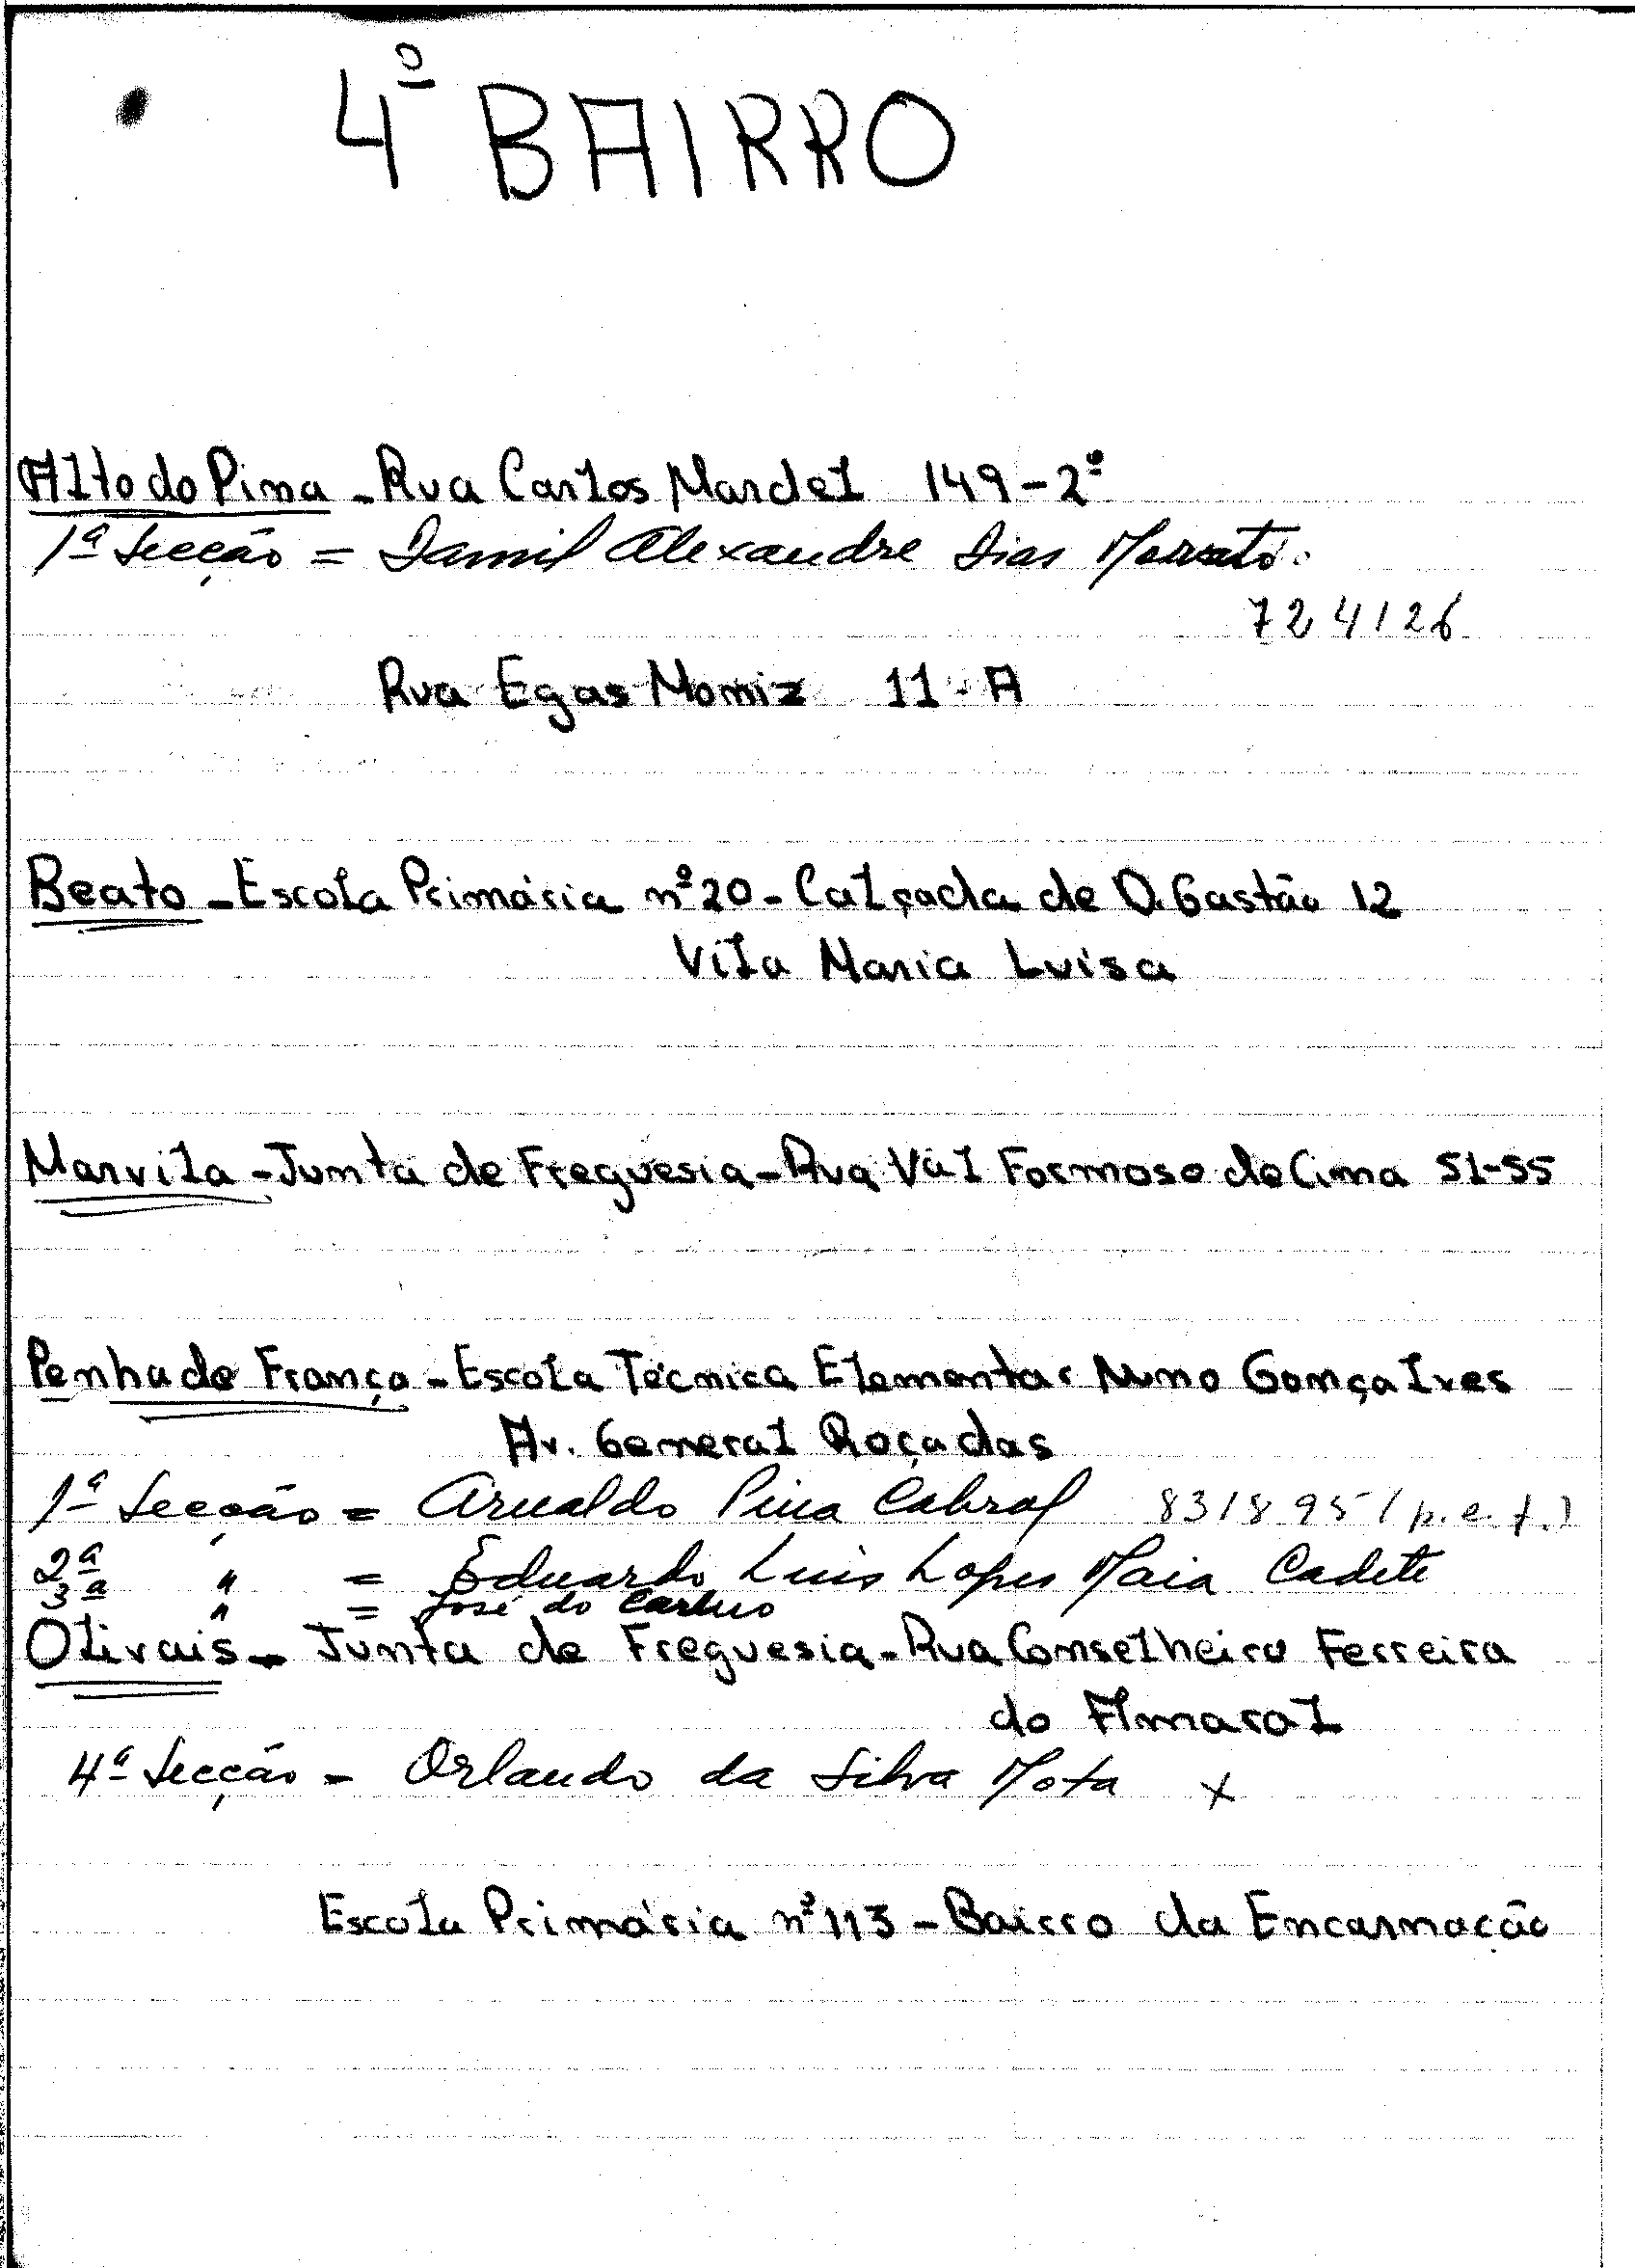 4º BAIRRO
Alto do Pina - Rua Carlos Mardel 149-2º
1ª Secção = Jamil Alexandre Dias
724126
Rua Egas Moniz 11-A
Beato - Escola Primária nº 20 - Calçada de D. Gastão 12
Vila Maria Luisa
Marvila - Junta de Freguesia - Rua Val Formoso de Cima 51-55
Penha de França - Escola Técnica Elementar Nuno Gonçalves
Av. General Roçadas
1ª Secção = Arnaldo Pina Cabral 831895 (p.e.f.)
2ª " = Eduardo Luis Lopes Maia Cadete
3ª " = José do Carmo
Olivais - Junta de Freguesia - Rua Conselheiro Ferreira
do Amaral
4ª Secção - Orlando da Silva Mota x
Escola Primária nº 113 - Bairro da Encarnação